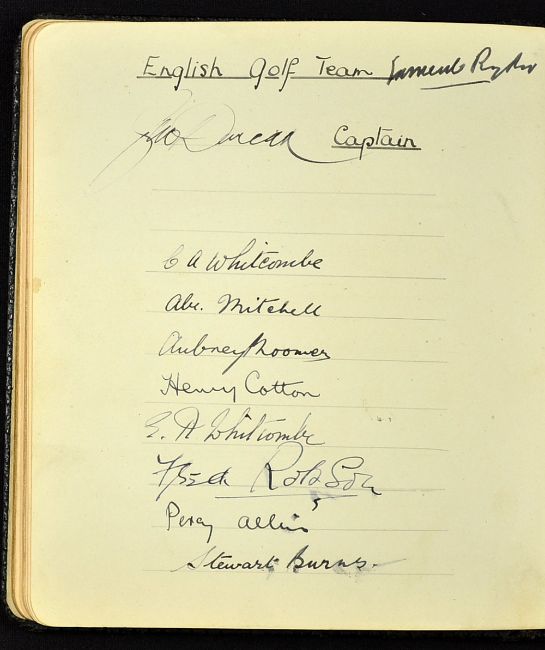 English Golf Team Samuel Ryder
Geo Duncan Captain
C A Whitcombe
Abe. Mitchell
Aubrey Boomer
Henry Cotton
E. R Whitcombe
Fred Robson
Percy Alliss
Stewart Burns.